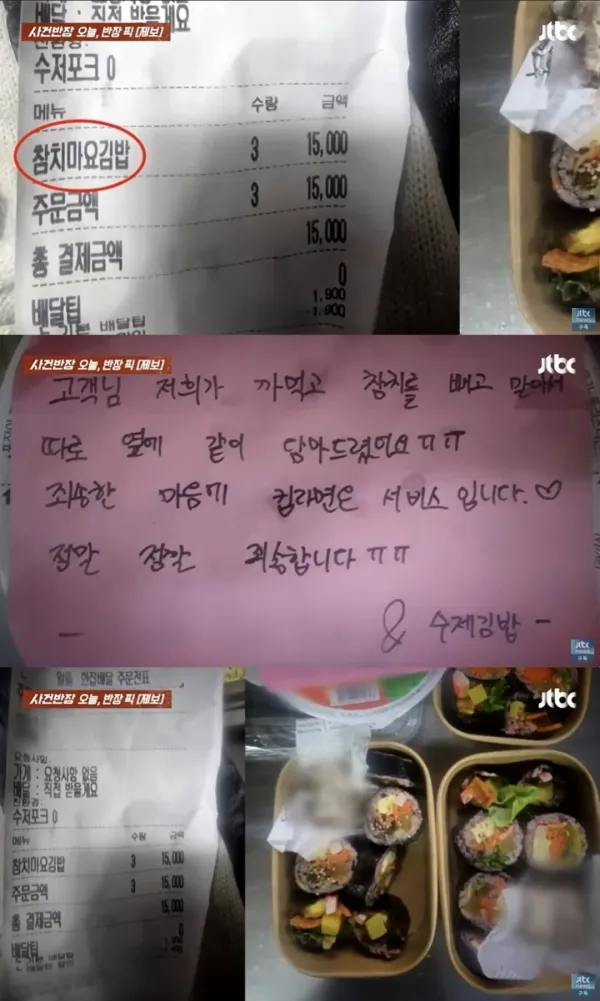 배달 : 직접 받을게요
사건반장 오늘, 반장 픽 [제보]
jtbc
수저포크 0
메뉴 수량 금액
참치마요김밥 3 15,000
주문금액 3 15,000
총 결제금액 15,000
배달팁 0
1,900
-1,900
jtbc
news
구독
사건반장 오늘, 반장 픽 [제보]
jtbc
고객님 저희가 까먹고 참치를 빼고 말아서
따로 옆에 같이 담아드렸어요 ㅠㅠ
죄송한 마음에 컵라면은 서비스 입니다. ♡
정말 정말 죄송합니다 ㅠㅠ
& 수제김밥 -
jtbc
news
구독
한집배달 주문전표
사건반장 오늘, 반장 픽 [제보]
jtbc
요청사항
가게 : 요청사항 없음
배달 : 직접 받을게요
수저포크 0
메뉴 수량 금액
참치마요김밥 3 15,000
주문금액 3 15,000
총 결제금액 15,000
배달팁 0
jtbc
news
구독